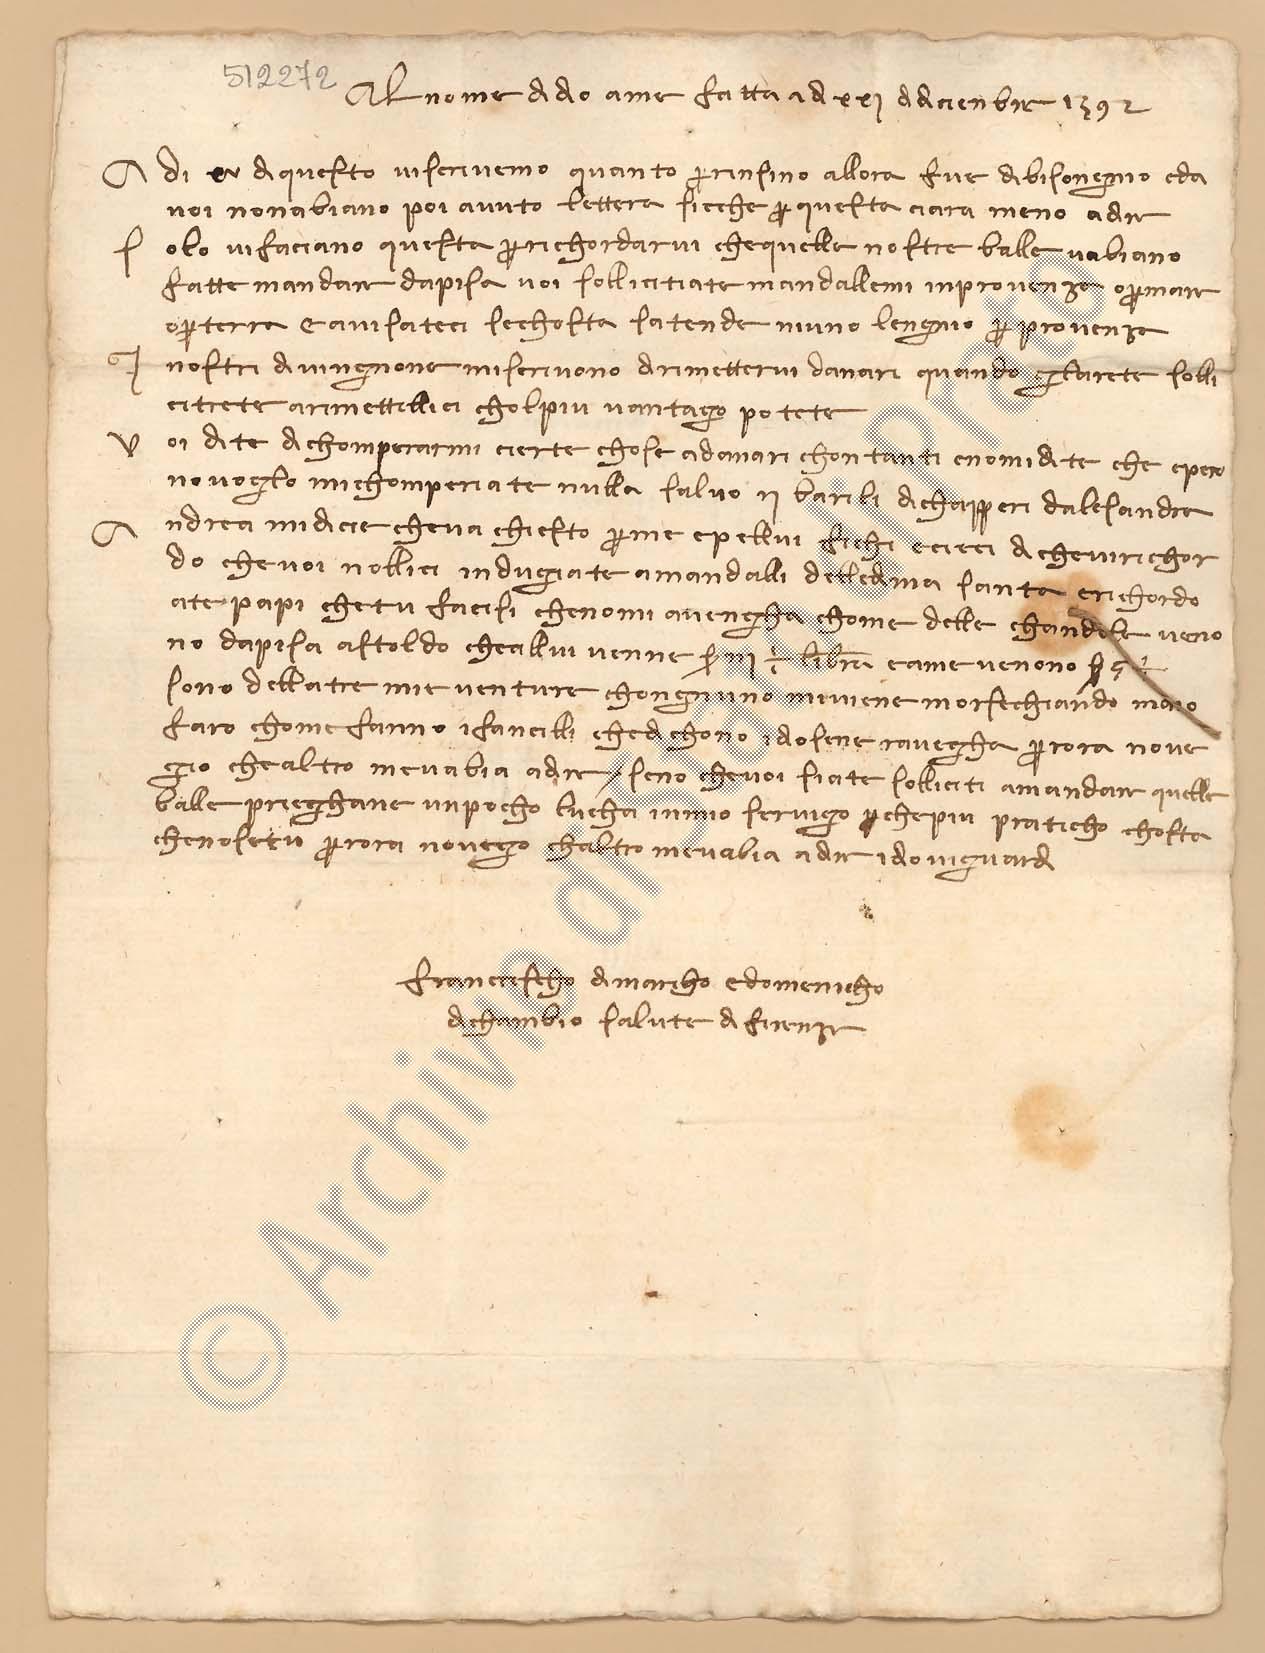 512272
Al nome di dio ame fatta adi xxi di dicienbre 1392
A di xv di questo vi scrivemo quanto per insino allora fue di bisongnio e da
voi non abiano poi avuto lettera sicche per questa ci ara meno a dire
S olo vi faciano questa per richordarvi che quelle nostre balle v abiano
fatte mandare da pisa voi sollicitiate mandallemi in provenza o per mare
o per terra e avisateci se chosta s atende niuno lengnio per provenza
I nostri di vingnone mi scrivono di rimettervi danari quando gl arete solli
citrete a rimettillici chol piu vantago potete
V oi dite di chomperarmi cierte chose a danari chontanti e no mi dite che e pero
no voglo mi chomperiate nulla salvo ii barili di chapperi d alesandra
A ndrea mi dicie che v a chiesto per me e pellui fichi e cieci di che vi richor
do che voi nolli ci indugiate a mandalli delle dma santa e richordo
a te papi che tu facci si che no mi avengha chome delle chandele veno
no da pisa a stoldo che a llui venne iii ½ libra e a me venono
sono dell atre mie venture ch ongniuno mi viene morsechiando ma io
faro chome fanno i fancilli che dichono idio se neravegha per ora no ve
gio che altro m ev abia a dire / seno che voi siate solliciti a mandare quelle
balle preghane un pocho lucha in mio servigo per ch e piu praticho chosta
che no se tu per ora no vego ch altro m ev abia a dire idio vi guardi
franciescho di marcho e domenicho
di chambio salute di firenze
© Archivio di Stato di Prato